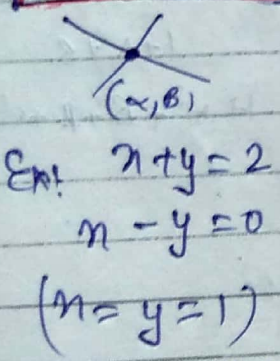 (α, β)
Ex: x + y = 2
x - y = 0
(x = y = 1)